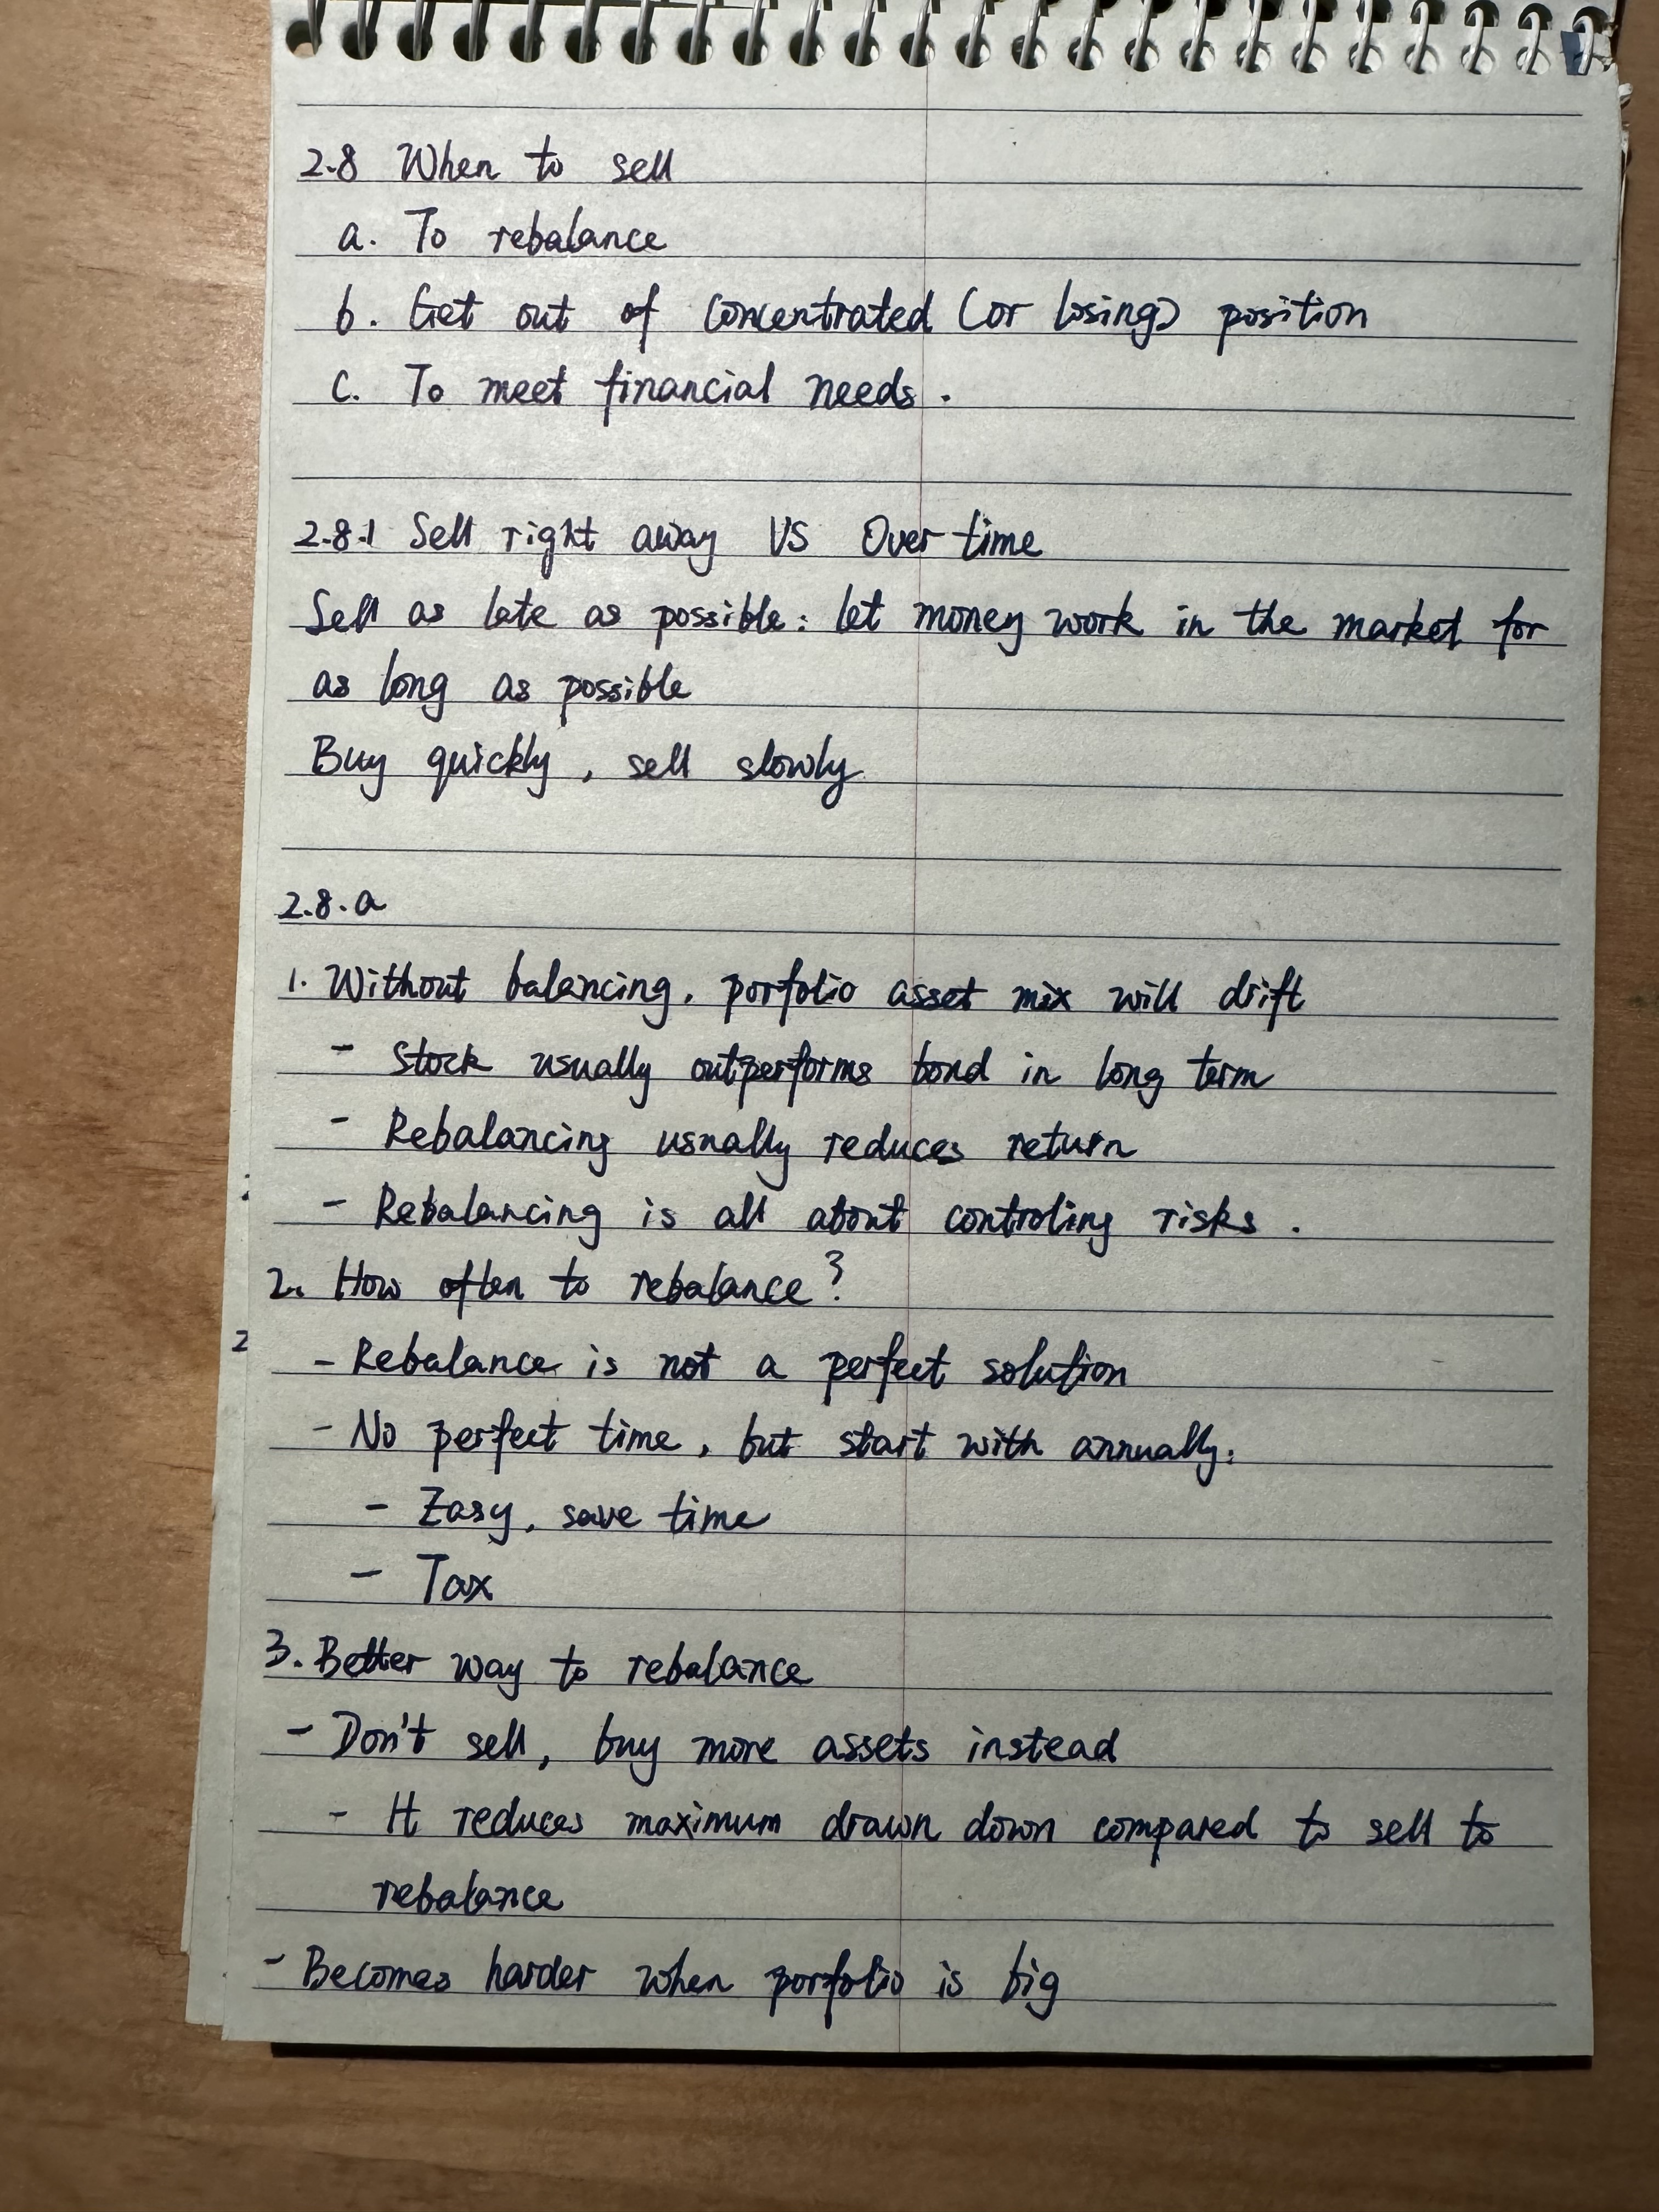 2.8 When to sell
a. To rebalance
b. Get out of concentrated (or losing) position
c. To meet financial needs.
2.8.1 Sell right away VS Over time
Sell as late as possible: let money work in the market for
as long as possible
Buy quickly, sell slowly
2.8.a
1. Without balancing, porfolio asset mix will drift
- Stock usually outperforms bond in long term
- Rebalancing usually reduces return
- Rebalancing is all about controling risks.
2. How often to rebalance?
2
- Rebalance is not a perfect solution
- No perfect time, but start with annually.
- Easy, save time
- Tax
3. Better way to rebalance
- Don't sell, buy more assets instead
- It reduces maximum drawn down compared to sell to
rebalance
- Becomes harder when porfolio is big